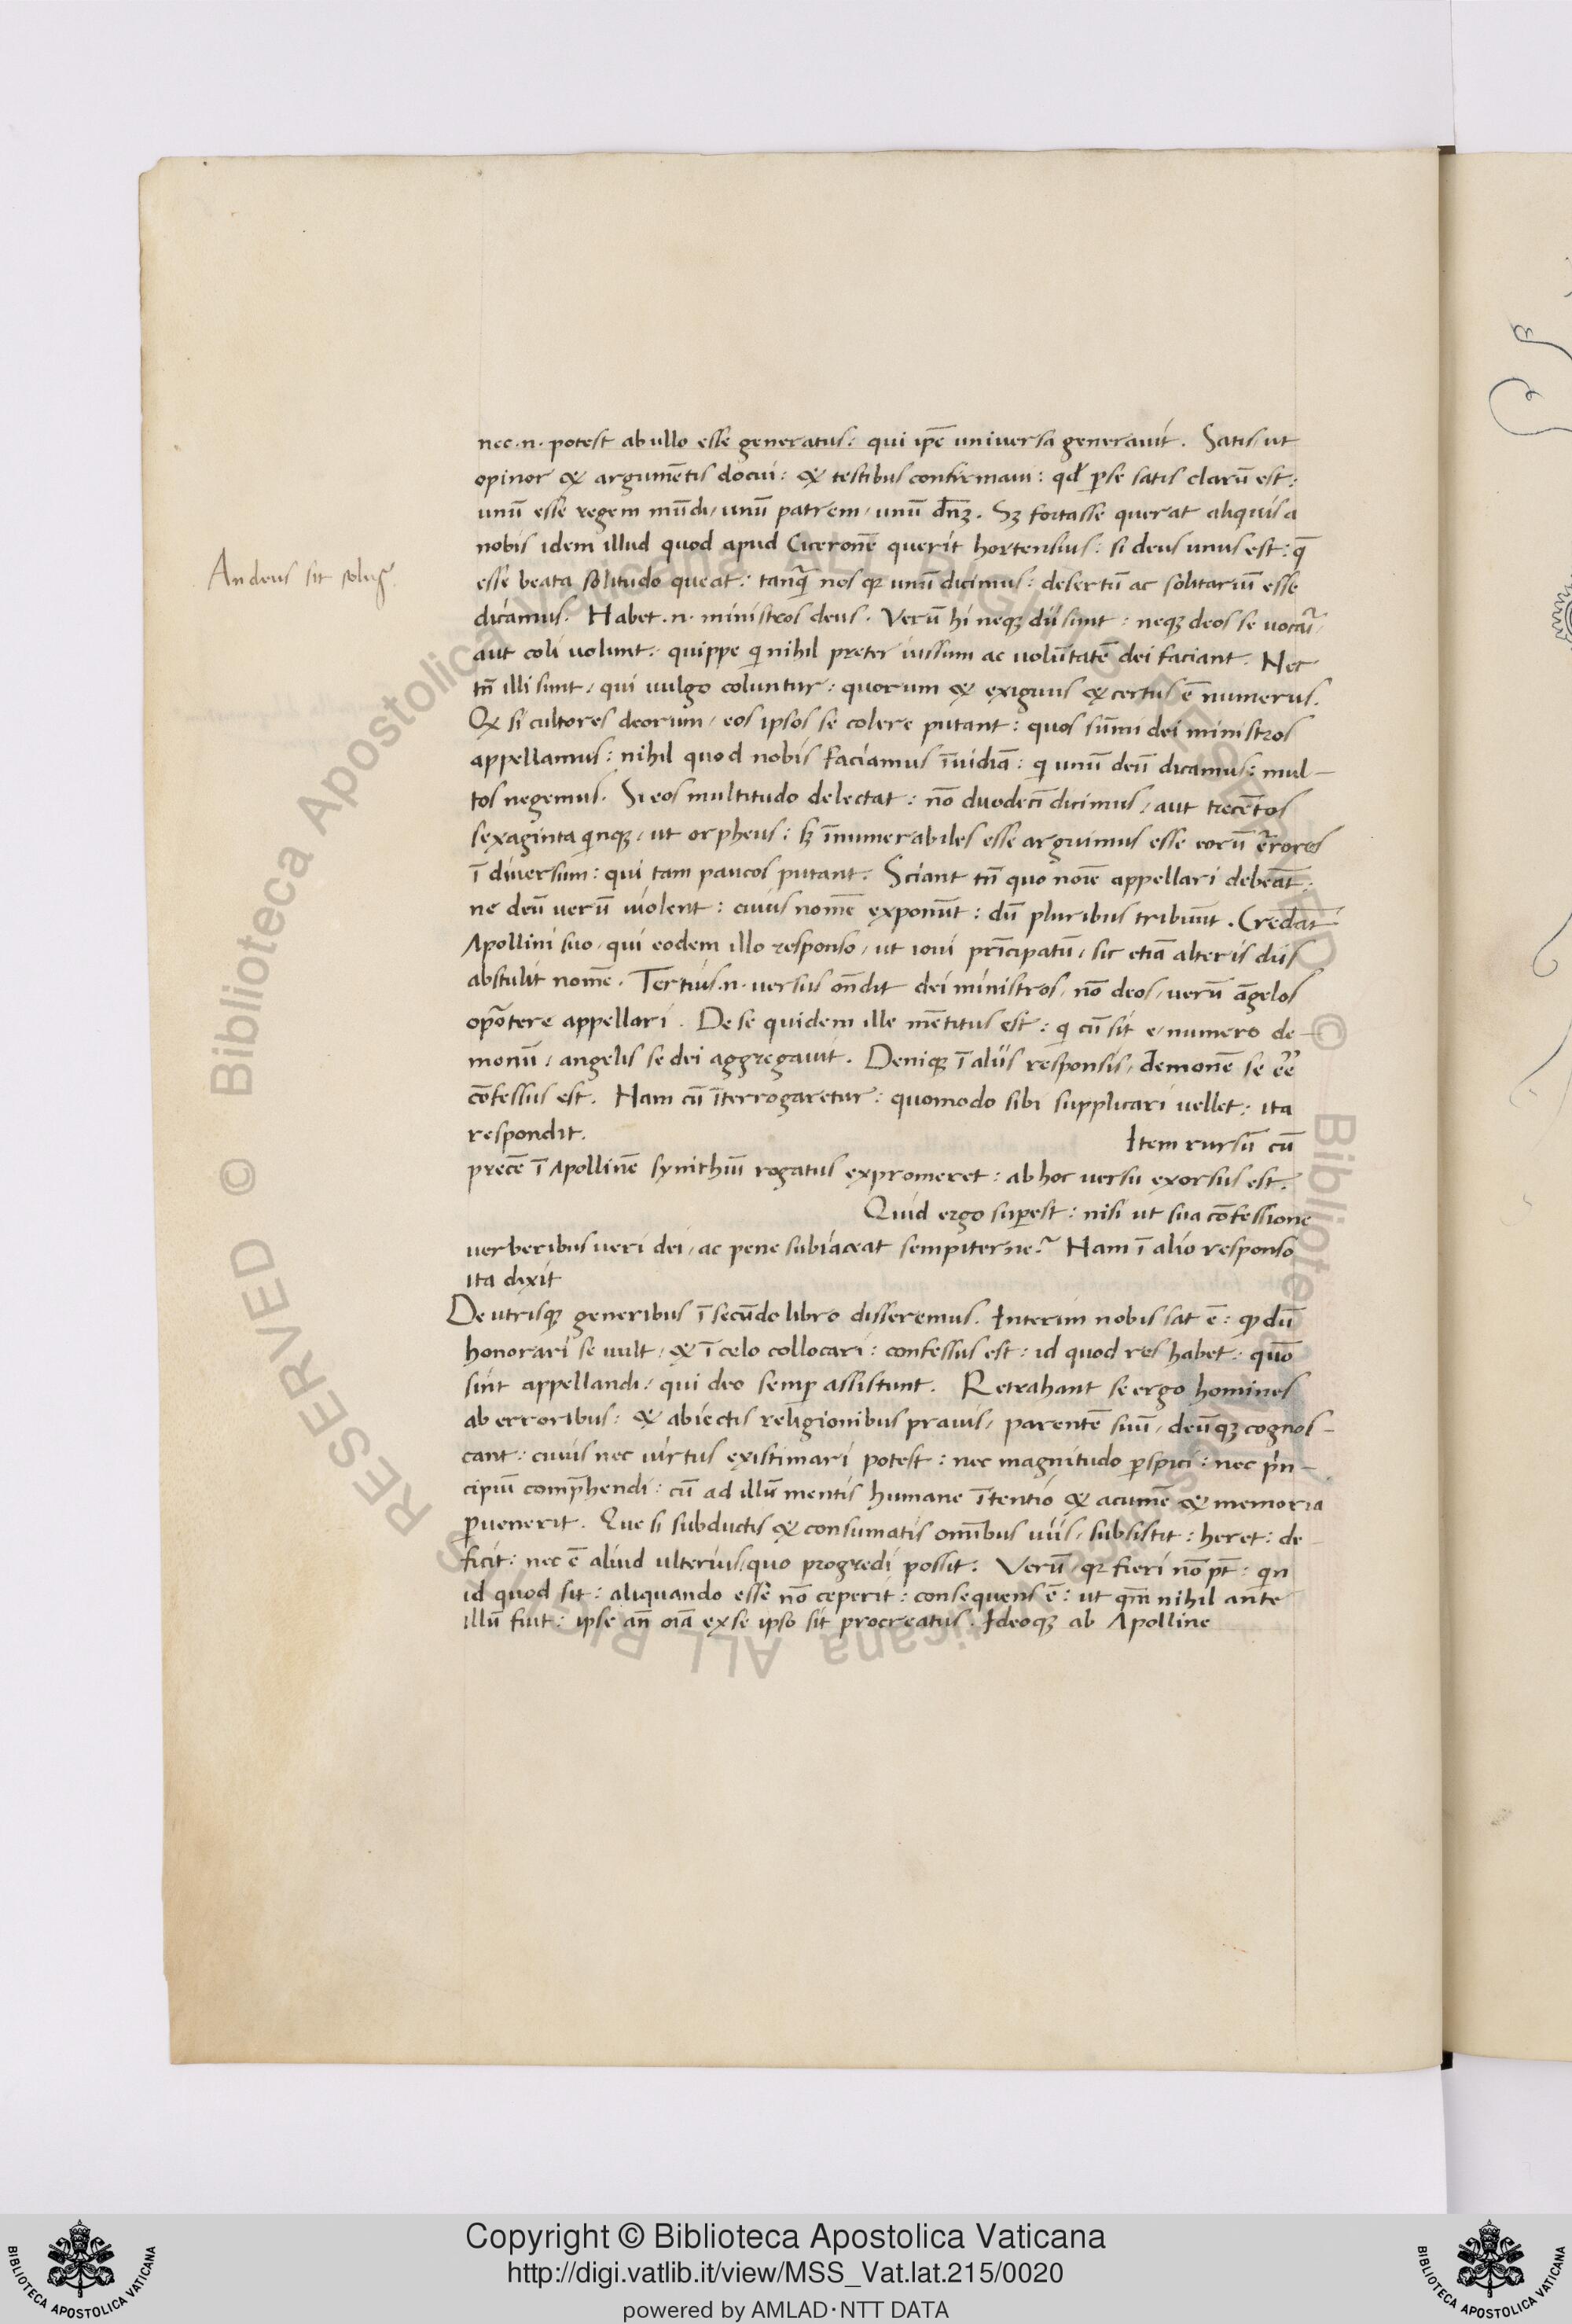 nec .n. potest ab ullo esse generatus: qui ip̄e universa generavit. Satis ut
opinor & argumētis docui: & testibus confirmavi: qđ ꝑ se satis clarū est:
unū esse regem mūdi, unū patrem, unū dn̄ꝫ. Sꝫ fortasse querat aliquis a
nobis idem illud quod apud Ciceronē querit hortensius: si deus unus est: q̄
An deus sit solus
esse beata solitudo queat: tanq̄ nos qꝫ unū dicimus: desertū ac solitariū esse
dicamus. Habet .n. ministros deus. Verū hi neqꝫ dii sunt: neqꝫ deos se vocari,
aut coli volunt: quippe qi nihil preter iussum ac volūtatē dei faciant. Nec
tn̄ illi sunt, qui vulgo coluntur: quorum & exiguus & certus ē numerus.
Qꝫ si cultores deorum, eos ipsos se colere putant: quos sūmi dei ministros
appellamus: nihil quod nobis faciamus īvidiā: qi unū deū dicamus: mul-
tos negemus. Si eos multitudo delectat: nō duodeci dicimus, aut trecētos
sexaginta qinqꝫ, ut orpheus: sꝫ īnumerabiles esse arguimus esse eorū errores
ī diversum: qui tam paucos putant. Sciant tn̄ quo noīe appellari debeāt:
ne deū verū violent: cuius nomē exponūt: dū pluribus tribuūt. Credāt
Apollini suo, qui eodem illo responso, ut iovi prīcipatū, sic etiā alteris diis
abstulit nomē. Tertius .n. versus on̄dit dei ministros, nō deos, verū āgelos
oportere appellari. De se quidem ille mētitus est: qi cū sit e, numero de-
monū, angelis se dei aggregavit. Deniqꝫ ī aliis responsis, demonē se eē
cōfessus est. Nam cū īterrogaretur: quomodo sibi supplicari vellet: ita
respondit. Item rursū cū
precē ī Apollinē synithiū rogatus expromeret: ab hoc versu exorsus est.
Quid ergo suꝑest: nisi ut sua cōfessione
verberibus veri dei, ac pene subiaceat sempiterne? Nam ī alio responso
ita dixit
De utrisqꝫ generibus ī secūdo libro disseremus. Interim nobis sat ē: qꝫ dū
honorari se vult, & ī celo collocari: confessus est: id quod res habet: quō
sint appellandi, qui deo semꝑ assistunt. Retrahant se ergo homines
ab erroribus: & abiectis religionibus pravis, parentē suū, deūqꝫ cognos-
cant: cuius nec virtus existimari potest: nec magnitudo ꝑspici: nec prin-
cipiū comp̄hendi: cū ad illū mentis humane ītentio & acumē & memoria
ꝑvenerit. Que si subductis & consumatis omībus viis, subsistit: heret: de-
ficit: nec ē aliud ulterius, quo progredi possit: Verū, qꝫ fieri nō pt̄: qin
id quod sit: aliquando esse nō ceperit: consequens ē: ut qm̄ nihil ante
illū fuit: ipse an̄ oīa ex se ipso sit procreatus. Ideoqꝫ ab Apolline
Copyright © Biblioteca Apostolica Vaticana
http://digi.vatlib.it/view/MSS_Vat.lat.215/0020
powered by AMLAD·NTT DATA